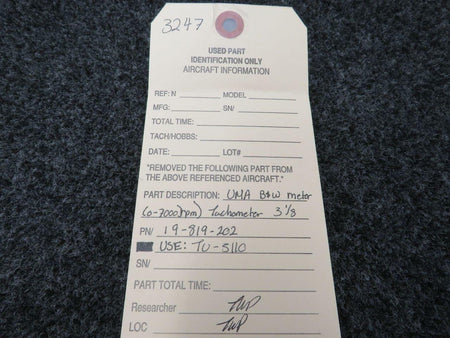 3247
USED PART
IDENTIFICATION ONLY
AIRCRAFT INFORMATION
REF: N MODEL
MFG: SN/
TOTAL TIME:
TACH/HOBBS:
DATE: LOT#
"REMOVED THE FOLLOWING PART FROM
THE ABOVE REFERENCED AIRCRAFT."
PART DESCRIPTION: UMA B&W meter
(0-7000)rpm) Tachometer 3 1/8
PN/ 19-819-202
USE: TU-5110
SN/
PART TOTAL TIME:
Researcher
LOC